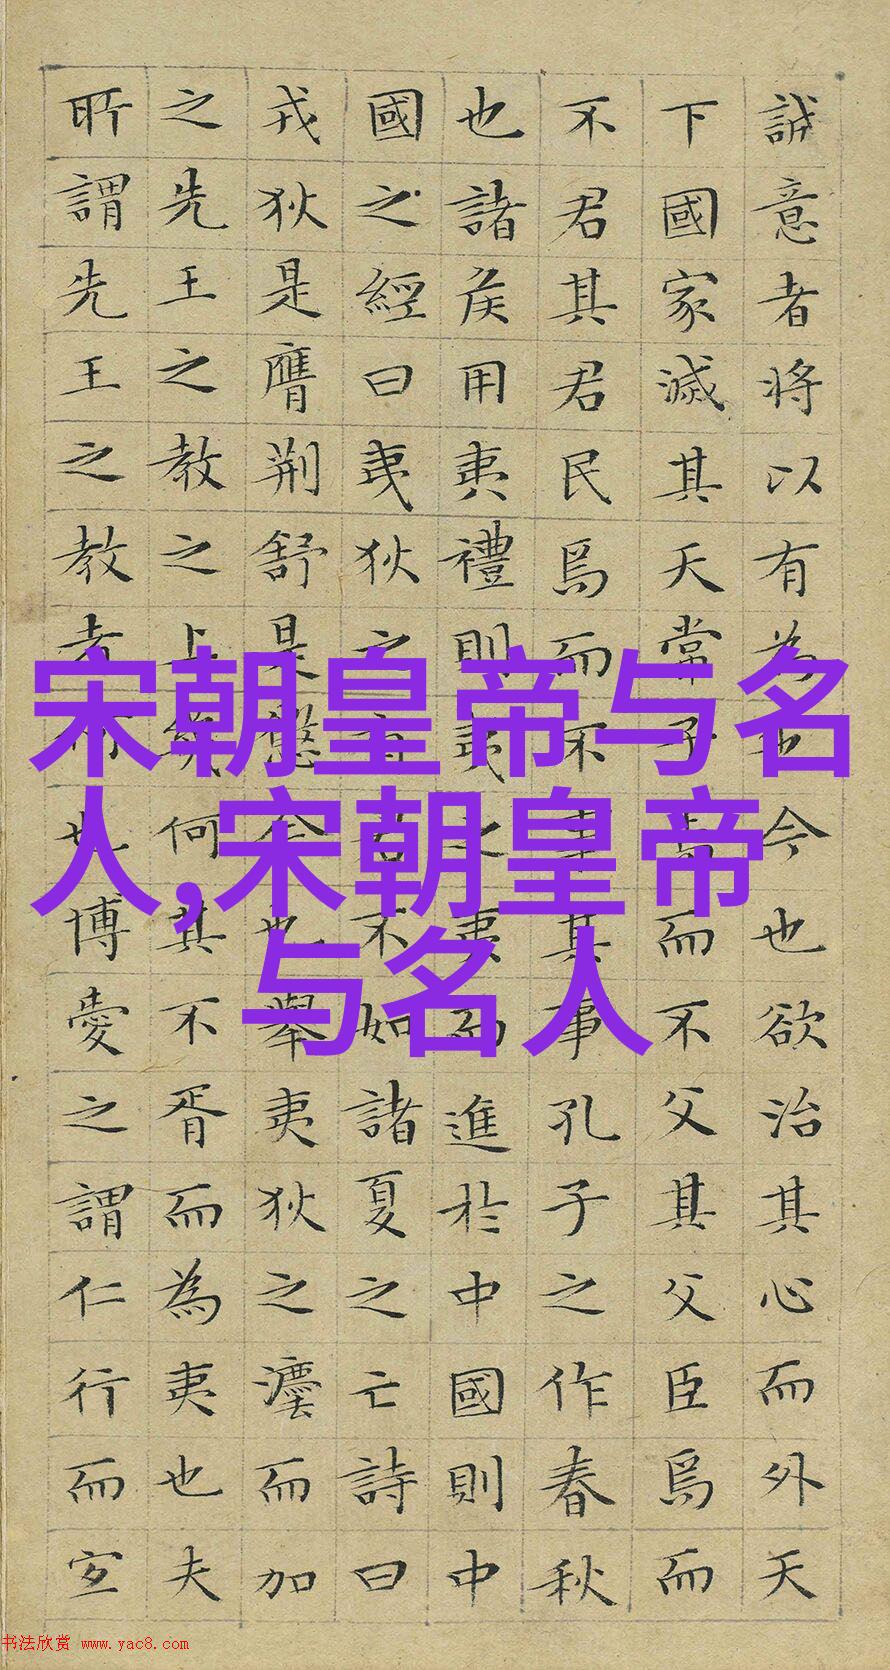 誠意者将以有為也今也欲治其心而外天
下國家滅其天常子焉而不父其父臣焉而
不君其君民焉而不事其事孔子之作春秋
也諸侯用夷禮則夷之夷而進於中國則中
國之經曰夷狄之有君不如諸夏之亡詩曰
戎狄是膺荆舒是懲今也舉夷狄之灋而加
之先王之教之上幾何其不胥而為夷也夫
所謂先王之教者何也博愛之謂仁行而宜
宋朝皇帝与名
人,宋朝皇帝
与名人
书法欣赏 www.yac8.com